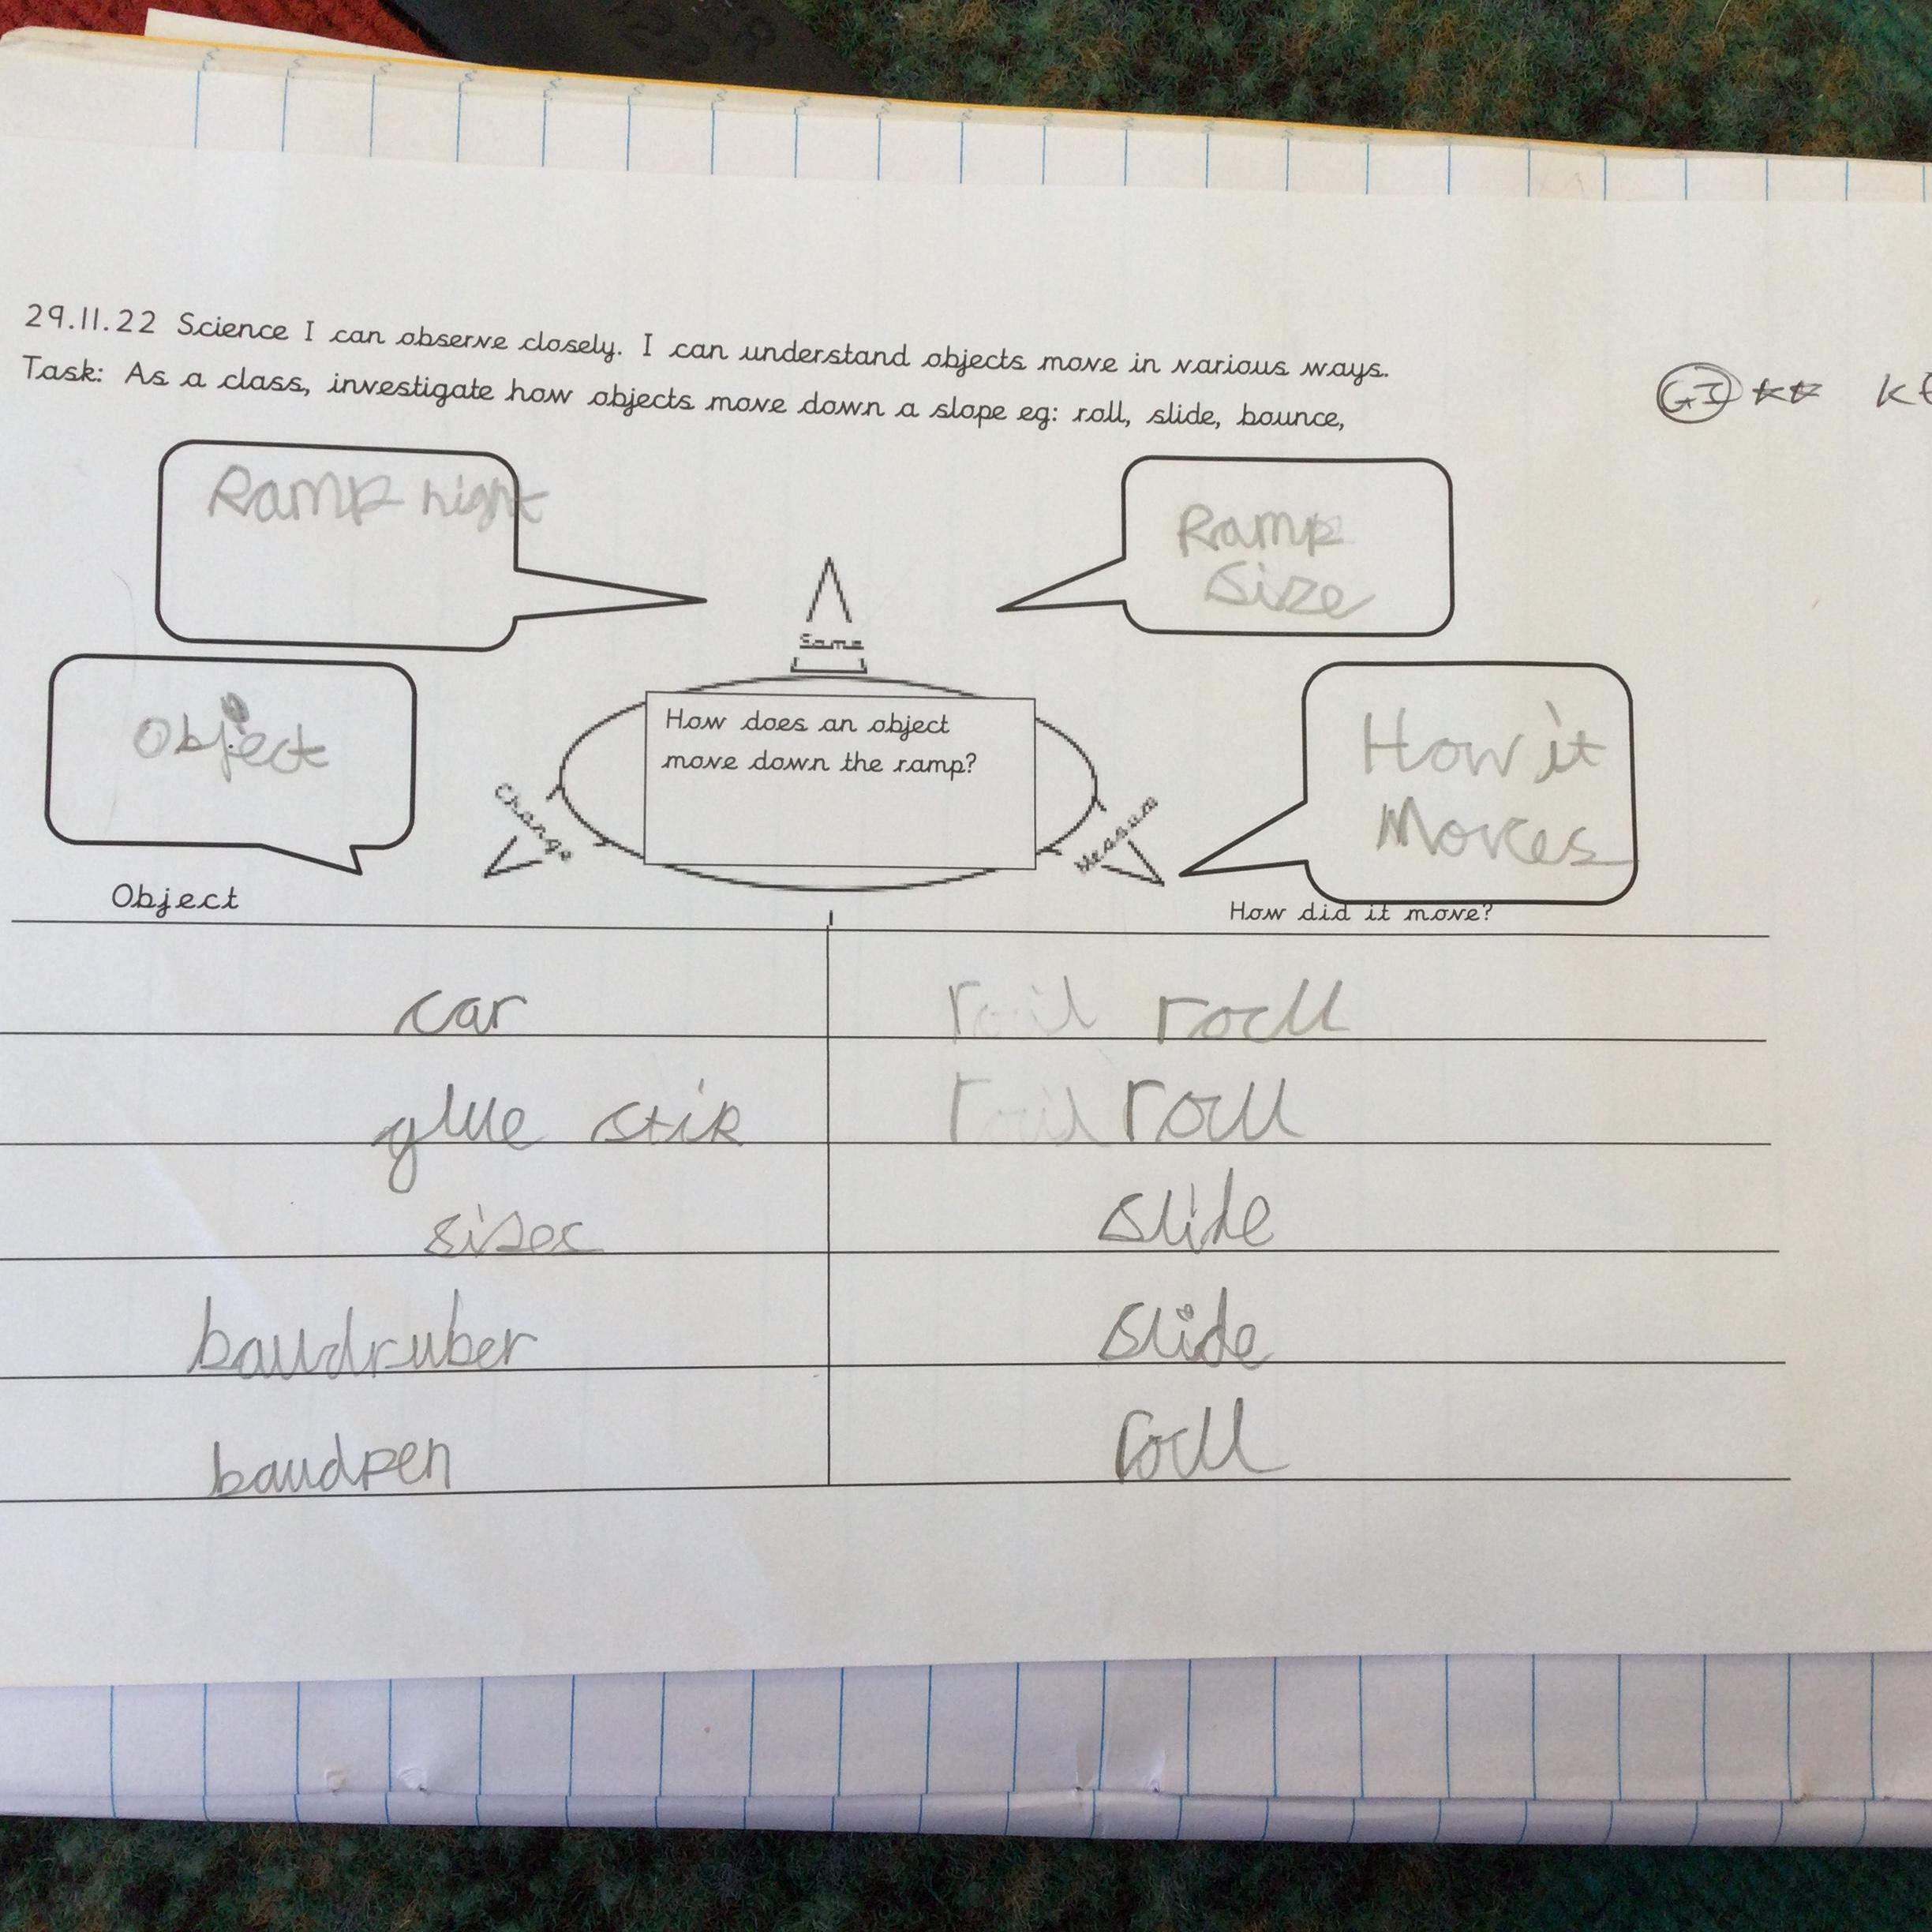 29.11.22 Science I can observe closely. I can understand objects move in various ways.
Task: As a class, investigate how objects move down a slope eg: roll, slide, bounce,
GI
Ramp hight
Ramp
Size
Same
Object
How does an object
move down the ramp?
How it
Moves
Change
Measure
Object
How did it move?
car
roll
glue stik
roll
sisec
slide
baudruber
slide
baudpen
roll